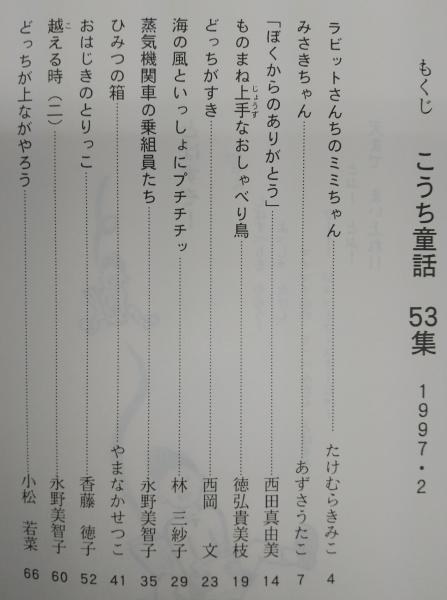 もくじ　こうち童話　53集　1997・2
ラビットさんちのミミちゃん……たけむらきみこ　4
みさきちゃん……あずさうたこ　7
「ぼくからのありがとう」……西田真由美　14
ものまね上手(じょうず)なおしゃべり鳥……徳弘貴美枝　19
どっちがすき……西岡　文　23
海の風といっしょにプチチチッ……林　三紗子　29
蒸気機関車の乗組員たち……永野美智子　35
ひみつの箱……やまなかせつこ　41
おはじきのとりっこ……香藤　徳子　52
越(こ)える時（二）……永野美智子　60
どっちが上ながやろう……小松　若菜　66